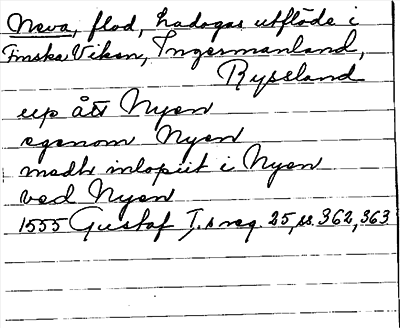 Neva, flod, Ladogas utflöde i
Finska Viken, Ingermanland,
Ryssland
up ått Nyen
egenom Nyen
medh inlopiit i Nyen
ved Nyen
1555 Gustaf I.s reg. 25, ss. 362, 363